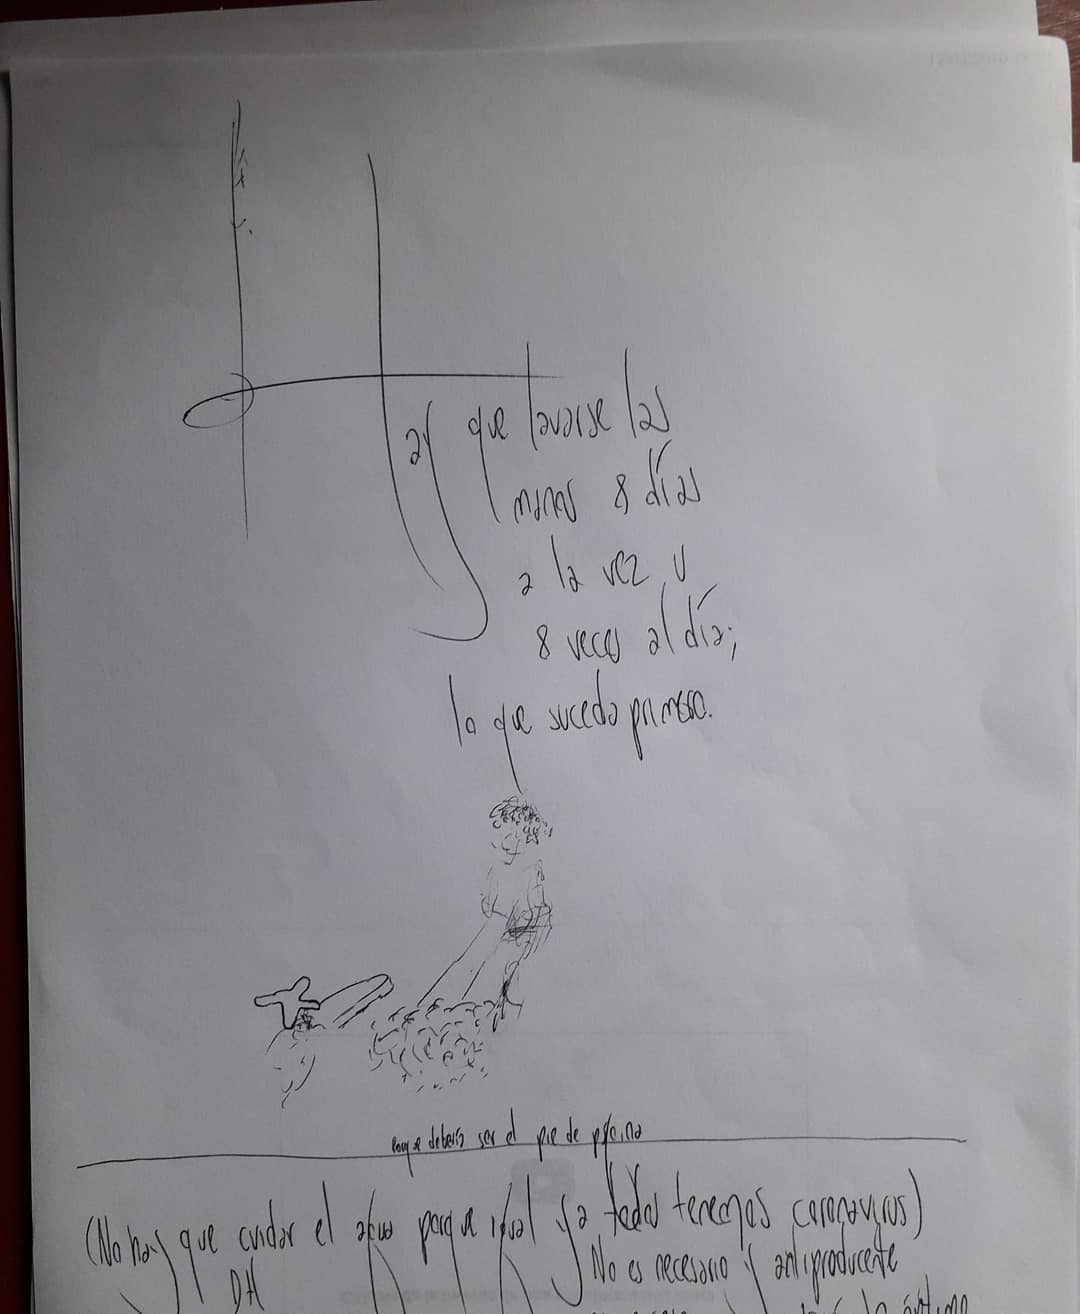 Hay que lavarse las
manos 8 días
a la vez u
8 veces al día;
lo que suceda primero.
lo que debería ser el pie de página
(No hay que cuidar el agua porque igual ya todos tenemos coronavirus)
No es necesario y antiproducente
DH